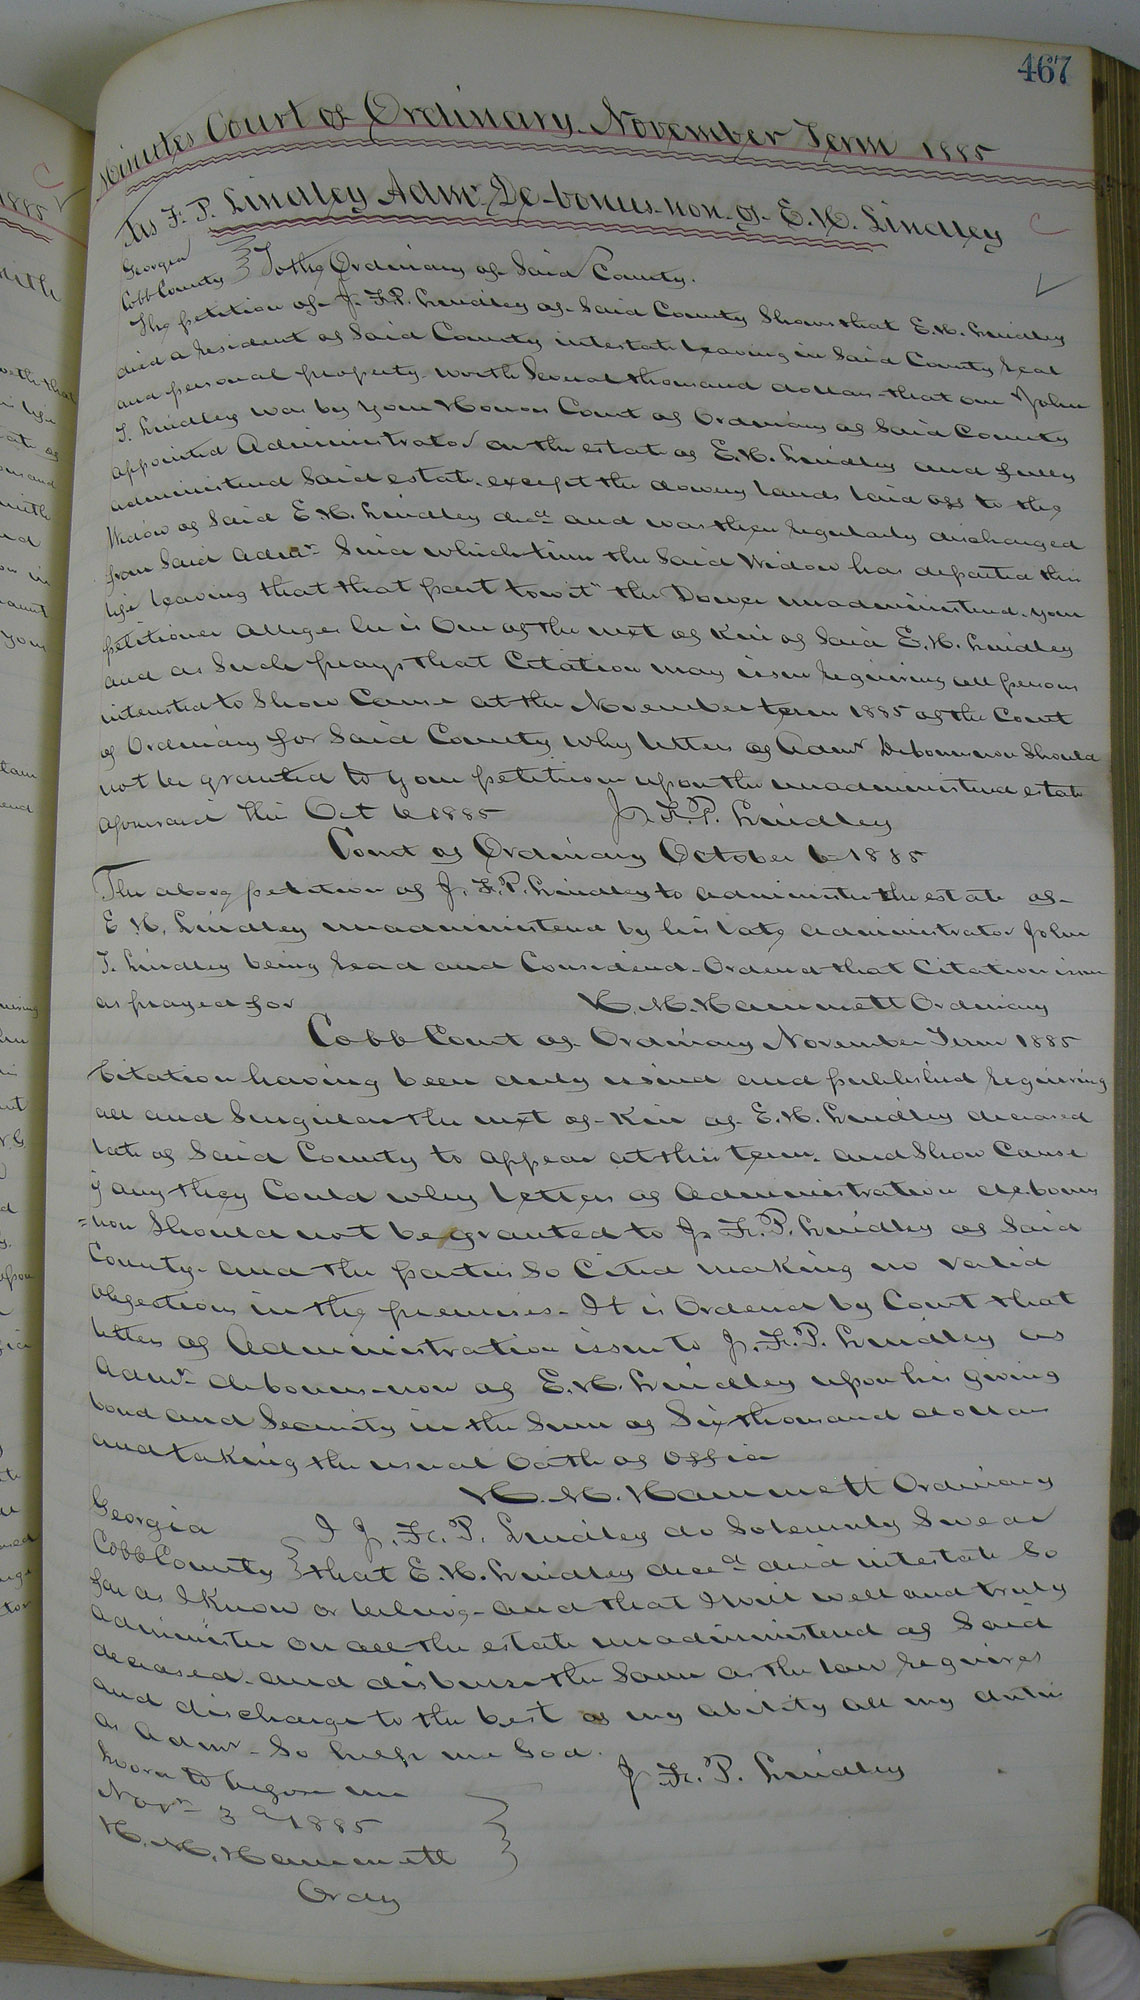 467
Minutes Court of Ordinary November Term 1885
Jas F. P. Lindley Admr De-bonus-non of E. H. Lindley
Georgia
Cobb County } To the Ordinary of Said County.
The petition of J. F. P. Lindley of Said County Shows that E. H. Lindley
died a resident of Said County intestate leaving in Said County real
and personal property worth Several thousand dollars that one John
T. Lindley was by your Honors Court of Ordinary of Said County
appointed Administrator on the estate of E. H. Lindley and fully
administered Said estate except the dowery lands laid off to the
Widow of Said E. H. Lindley decd and was then regularly discharged
from Said Admr Since which time the Said Widow has departed this
life leaving that that part towit" the Dower unadministered. your
petitioner alleges he is One of the next of Kin of Said E. H. Lindley
and as Such prays that Citation may issue requiring all persons
interested to Show Cause at the November term 1885 of the Court
of Ordinary for Said County why letters of Admr Debonusnon Should
not be granted to your petitioner upon the unadministered estate
aforesaid This Oct 6 1885 J. F. P. Lindley
Court of Ordinary October 6 1885
The above petition of J. F. P. Lindley to administer the estate of
E. H. Lindley unadministered by his late administrator John
T. Lindley being read and Considered. Ordered that Citation issue
as prayed for H. M. Hammett Ordinary
Cobb Court of Ordinary November Term 1885
Citation having been duly issued and published requiring
all and Singular the next of Kin of E. H. Lindley deceased
late of Said County to appear at this term. and Show Cause
if any they Could why letters of Administration de bonus
=non Should not be granted to J. F. P. Lindley of Said
County. and the parties So Cited making no valid
objections in the premises. It is Ordered by Court that
letters of Administration issue to J. F. P. Lindley as
Admr. de bonus-non of E. H. Lindley upon his giving
bond and Security in the Sum of Six thousand dollars
and taking the usual Oath of Office
H. M. Hammett Ordinary
Georgia
Cobb County } I J. F. P. Lindley do Solemnly Swear
that E. H. Lindley decd died intestate So
far as I Know or believe. and that I will well and truly
administer on all the estate unadministered of Said
deceased. and disburse the Same as the law requires
and discharge to the best of my ability all my duties
as Admr. So help me God.
Sworn to before me J. F. P. Lindley
Novr 3d 1885
H. M. Hammett
Ordy